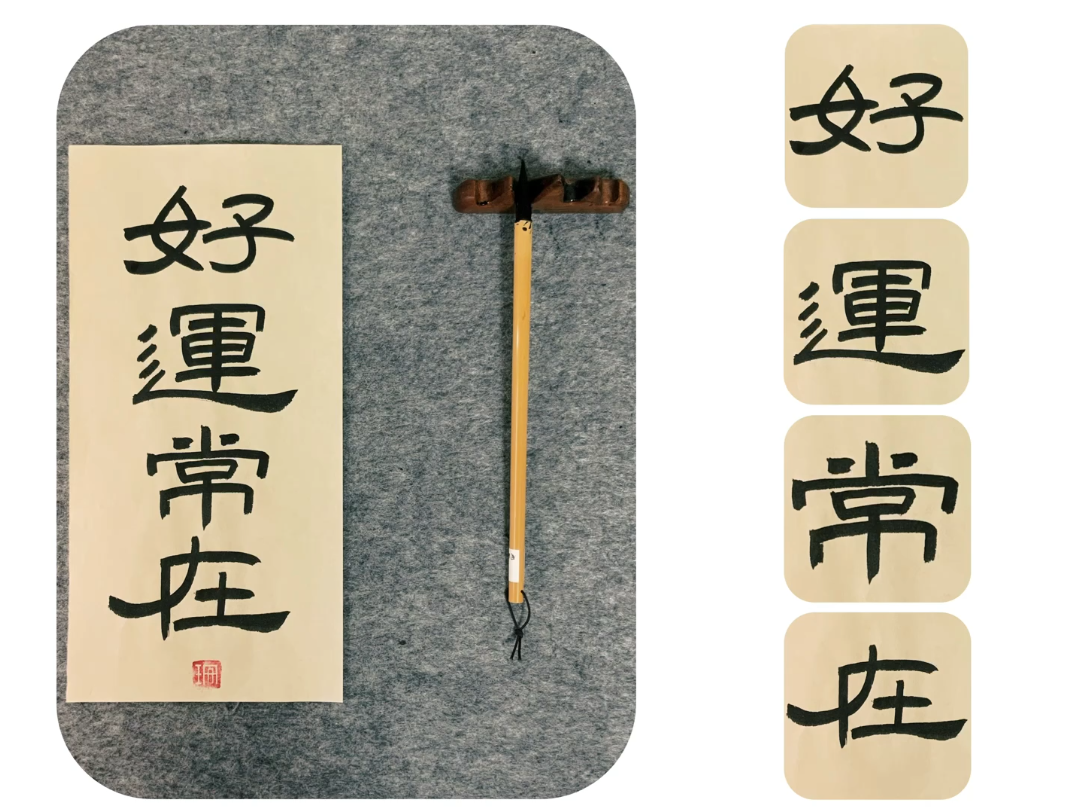 好
運
常
在
好
運
常
在